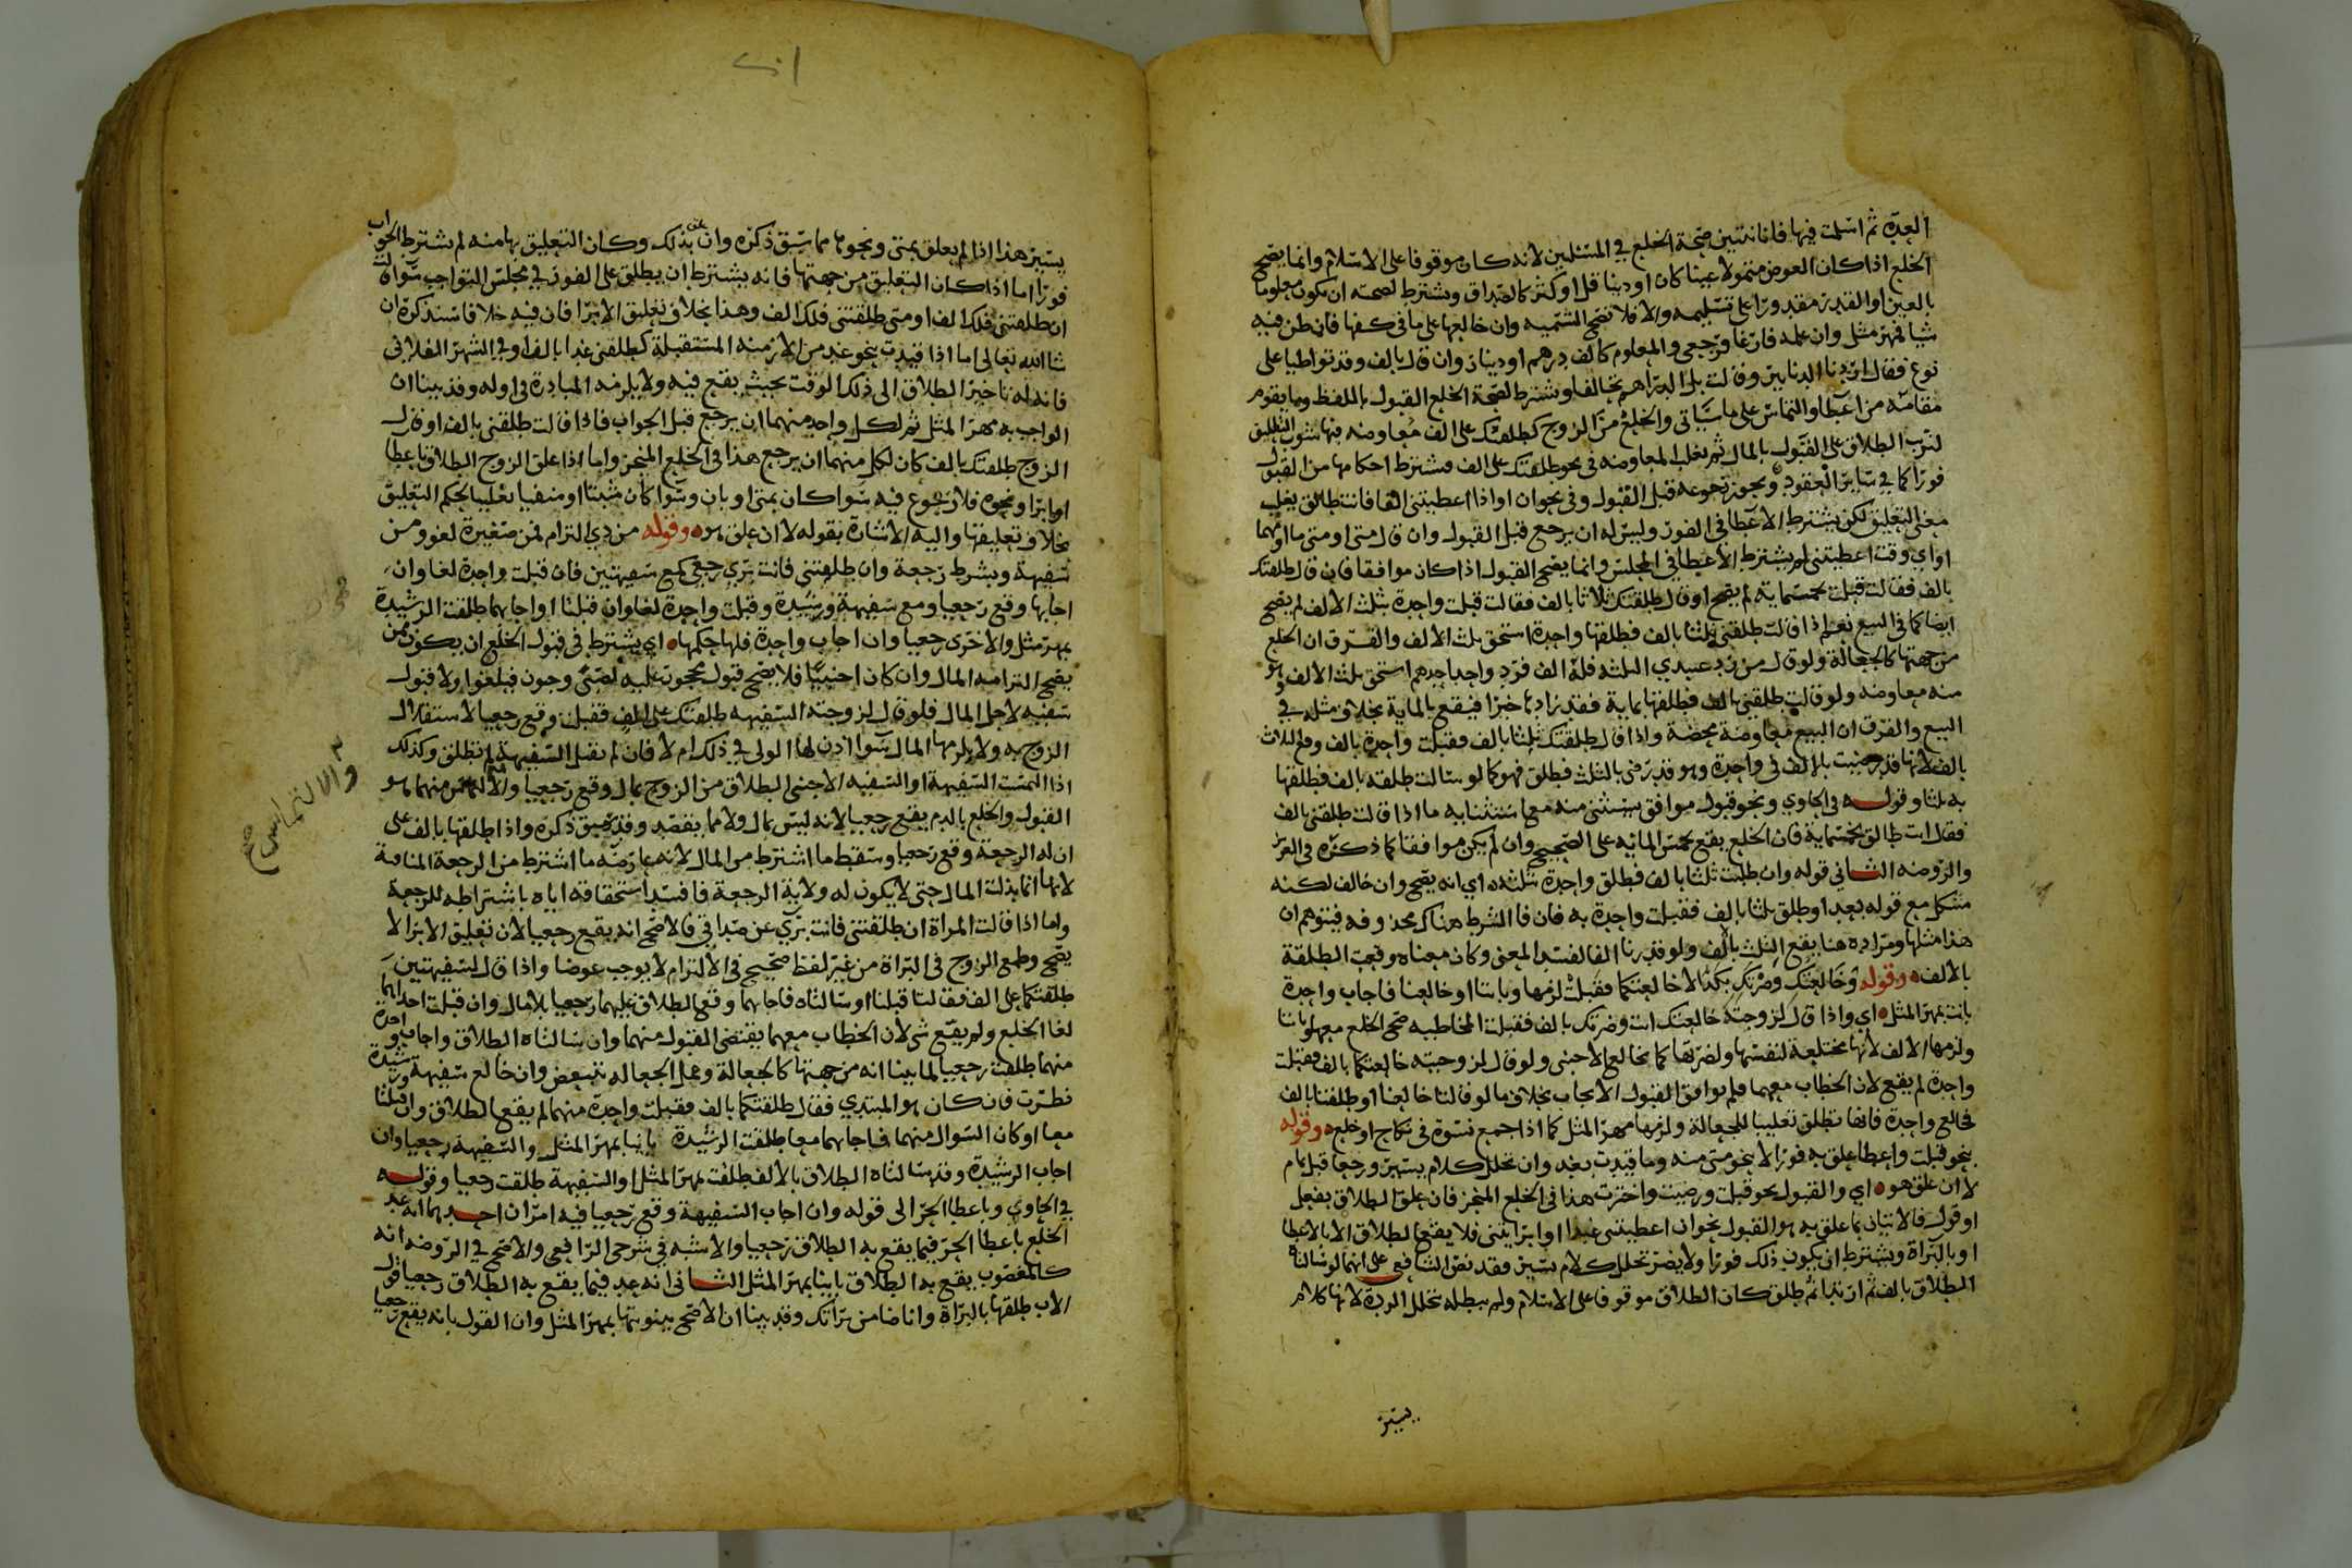 العدة ثم اسلمت فيها فانا نتبين صحة الخلع في المسئلتين لانه كان موقوفا على الاسلام وانما يصح
الخلع اذا كان العوض متمولا عينا كان او دينا قل او كثر كالصداق ويشترط لصحته ان يكون معلوما
بالعين او القدر مقدورا على تسليمه والا فلا تصح التسمية وان خالعها على ما في كفها فان ظن فيه
شيا فمهر مثل وان علمه فارغا فرجعي والمعلوم كالف درهم او دينار وان قال بالف وقد تواطيا على
نوع فقال اردنا الدنانير وقالت بل الدراهم تحالفا ويشترط لصحة الخلع القبول باللفظ وما يقوم
مقامه من اعطا والتماس على ما سياتي والخلع من الزوج كطلقتك على الف معاوضة فيها شوب التعليق
لترتب الطلاق على القبول بالمال ثم تغلب المعاوضه في نحو طلقتك على الف فيشترط احكامها من القبول
فورا كما في ساير العقود ويجوز رجوعه قبل القبول وفي نحو ان او اذا اعطيتني الفا فانت طالق يغلب
معنى التعليق لكن يشترط الاعطا في الفور وليس له ان يرجع قبل القبول وان قال متى او متى ما او مهما
او اي وقت اعطيتني لم يشترط الاعطا في المجلس وانما يصح القبول اذا كان موافقا فان قال طلقتك
بالف فقالت قبلت بخمسماية لم يصح او قال طلقتك ثلاثا بالف فقالت قبلت واحدة بثلث الالف لم يصح
ايضا كما في البيع نعم اذا قالت طلقني ثلثا بالف فطلقها واحدة استحق ثلث الالف والفرق ان الخلع
من جهتها كالجعالة ولو قال من رد عبيدي الثلثه فله الف فرد واحد احدهم استحق ثلث الالف وهو
منه معاوضه ولو قالت طلقني بالف فطلقها بماية فقد زادها خيرا فيقع بالماية بخلاف مثله في
البيع والفرق ان البيع معاوضة محضة واذا قال طلقتك ثلثا بالف فقبلت واحدة بالف وقع الثلاث
بالف لانها قد رضيت بالالف في واحدة وهو قد رضي بالثلث فطلق فهو كما لو سالت طلقه بالف فطلقها
به ثلثا وقوله في الحاوي ونحو قبول موافق يستثنى منه معما استثنا به ما اذا قالت طلقني بالف
فقال انت طالق بخمسماية فان الخلع يقع بخمس المائه على الصحيح وان لم يكن موافقا كما ذكره في العزيز
والروضه الثاني قوله وان طلبت ثلثا بالف فطلق واحدة بثلثه اي انه يصح وان خالف لكنه
مشكل مع قوله بعد او طلق ثلثا بالف فقبلت واحدة به فان فا الشرط هناك محذوفه فيتوهم ان
هذا مثلها ومراده هنا يقع الثلث بالف ولو قدرنا الفا لفسد المعنى وكان معناه وقعت الطلقة
بالالف وقوله وخالعتك وضرتك بكذا لا خالعتكما فقبلت لزمها وبانتا او خالعنا فاجاب واحدة
بانت بمهر المثل اي واذا قال لزوجته خالعتك انت وضرتك بالف فقبلت المخاطبه صح الخلع معها وبانتا
ولزمها الالف لانها مختلعة لنفسها ولضرتها كما يخالع الاجنبي ولو قال لزوجتيه خالعتكما بالف فقبلت
واحدة لم يقع لان الخطاب معهما فلم يوافق القبول الايجاب بخلاف ما لو قالتا خالعنا او طلقنا بالف
فخالع واحدة فانها تطلق تغليبا للجعالة ولزمها مهر المثل كما اذا جمع نسوة في نكاح او خلع وقوله
بنحو قبلت واعطا علق به فورا لا بنحو متى منه وما قيدت بغد وان تخلل كلام يسير ورجعا قبل تمام
لا ان علق هو اي والقبول بنحو قبلت ورضيت واخترت هذا في الخلع المنجز فان علق الطلاق بفعل
او قول فالاتيان بما علق به هو القبول نحو ان اعطيتني عبدا او ابراتني فلا يقع الطلاق الا بالاعطا
او بالبراة ويشترط ان يكون ذلك فورا ولا يضر تخلل كلام يسير فقد نص الشافعي على انهما لو سالتاه
الطلاق بالف ثم ارتدا ثم طلق كان الطلاق موقوفا على الاسلام ولم يبطله تخلل الردة لانها كلام
يسير
يسير هذا اذا لم يعلق بمتى ونحوها مما سبق ذكره وان علق بذلك وكان التعليق بها منه لم يشترط الجواب
فورا اما اذا كان التعليق من جهتها فانه يشترط ان يطلق على الفور في مجلس التواجب سوا قالت
ان طلقتني فلك الف او متى طلقتني فلك الف وهذا بخلاف تعليق الابرا فان فيه خلافا سنذكره ان
شا الله تعالى اما اذا قيدت بنحو غد من الازمنه المستقبلة كطلقني غدا بالف او في الشهر الفلاني
فانه له تاخير الطلاق الى ذلك الوقت بحيث يقع فيه ولا يلزمه المبادرة في اوله وقد بينا ان
الواجب به مهر المثل ثم لكل واحد منهما ان يرجع قبل الجواب فاذا قالت طلقني بالف او قال
الزوج طلقتك بالف كان لكل منهما ان يرجع هذا في الخلع المنجز واما اذا علق الزوج الطلاق باعطا
او ابرا ونحوه فلا رجوع فيه سوا كان بمتى او بان وسوا كان مثبتا او منفيا تغليبا لحكم التعليق
بخلاف تعليقها واليه الاشارة بقوله لا ان علق هو وقوله من ذي التزام فمن صغيرة لغو ومن
سفيهة وبشرط رجعة وان طلقتني فانت بري رجعي كمع سفيهتين فان قبلت واحدة لغا وان
اجابها وقع رجعيا ومع سفيهة ورشيدة وقبلت واحدة لغا وان قبلتا او اجابهما طلقت الرشيدة
بمهر مثل والاخرى رجعيا وان اجاب واحدة فلها حكمها اي يشترط في قبول الخلع ان يكون ممن
يصح التزامه المال وان كان اجنبيا فلا يصح قبول محجور عليه لصبى وجنون فيلغوا ولا قبول
سفيه لاجل المال فلو قال لزوجته السفيهه طلقتك على الف فقبلت وقع رجعيا لاستقلال
الزوج به ولا يلزمها المال سوا اذن لها الولي في ذلك ام لا فان لم تقبل السفيهة لم تطلق وكذلك
اذا التمست السفيهة او السفيه الاجنبي الطلاق من الزوج بمال وقع رجعيا والالتماس منهما هو
والالتماس صح
القبول والخلع بالدم يقع رجعيا لانه ليس بمال ولا مما يقصد وقد سبق ذكره واذا طلقها بالف على
ان له الرجعة وقع رجعيا وسقط ما اشترط من المال لانه عارضه ما اشترط من الرجعة المنافية
لانها انما بذلت المال حتى لا يكون له ولاية الرجعة فافسد استحقاقه اياه باشتراطه للرجعة
واما اذا قالت المراة ان طلقتني فانت بري عن صداقي فالاصح انه يقع رجعيا لان تعليق الابرا لا
يصح وطمع الزوج في البراة من غير لفظ صحيح في الالتزام لا يوجب عوضا واذا قال لسفيهتين
طلقتكما على الف فقالتا قبلنا او سالتاه فاجابهما وقع الطلاق عليهما رجعيا بلا مال وان قبلت احداهما
لغا الخلع ولم يقع شي لان الخطاب معهما يقتضي القبول منهما وان سالتاه الطلاق واجاب واحدة
منهما طلقت رجعيا لما بينا انه من جهتها كالجعالة وعمل الجعاله يتبعض وان خالع سفيهة ورشيدة
نظرت فان كان هو المبتدي فقال طلقتكما بالف فقبلت واحدة منهما لم يقع الطلاق وان قبلتا
معا او كان السوال منهما فاجابهما معا طلقت الرشيدة باينا بمهر المثل والسفيهة رجعيا وان
اجاب الرشيدة وقد سالتاه الطلاق بالالف طلقت بمهر المثل او السفيهة طلقت رجعيا وقوله
في الحاوي وباعطا الحر الى قوله وان اجاب السفيهة وقع رجعيا فيه امران احدهما انه عد
الخلع باعطا الحر فيما يقع به الطلاق رجعيا والاشبه في شرحي الرافعي والاصح في الروضه انه
كالمغصوب يقع به الطلاق باينا بمهر المثل الثاني انه عد فيما يقع به الطلاق رجعيا قول
الاب طلقها بالبراة وانا ضامن براتك وقد بينا ان الاصح بينونتها بمهر المثل وان القول بانه يقع رجعيا